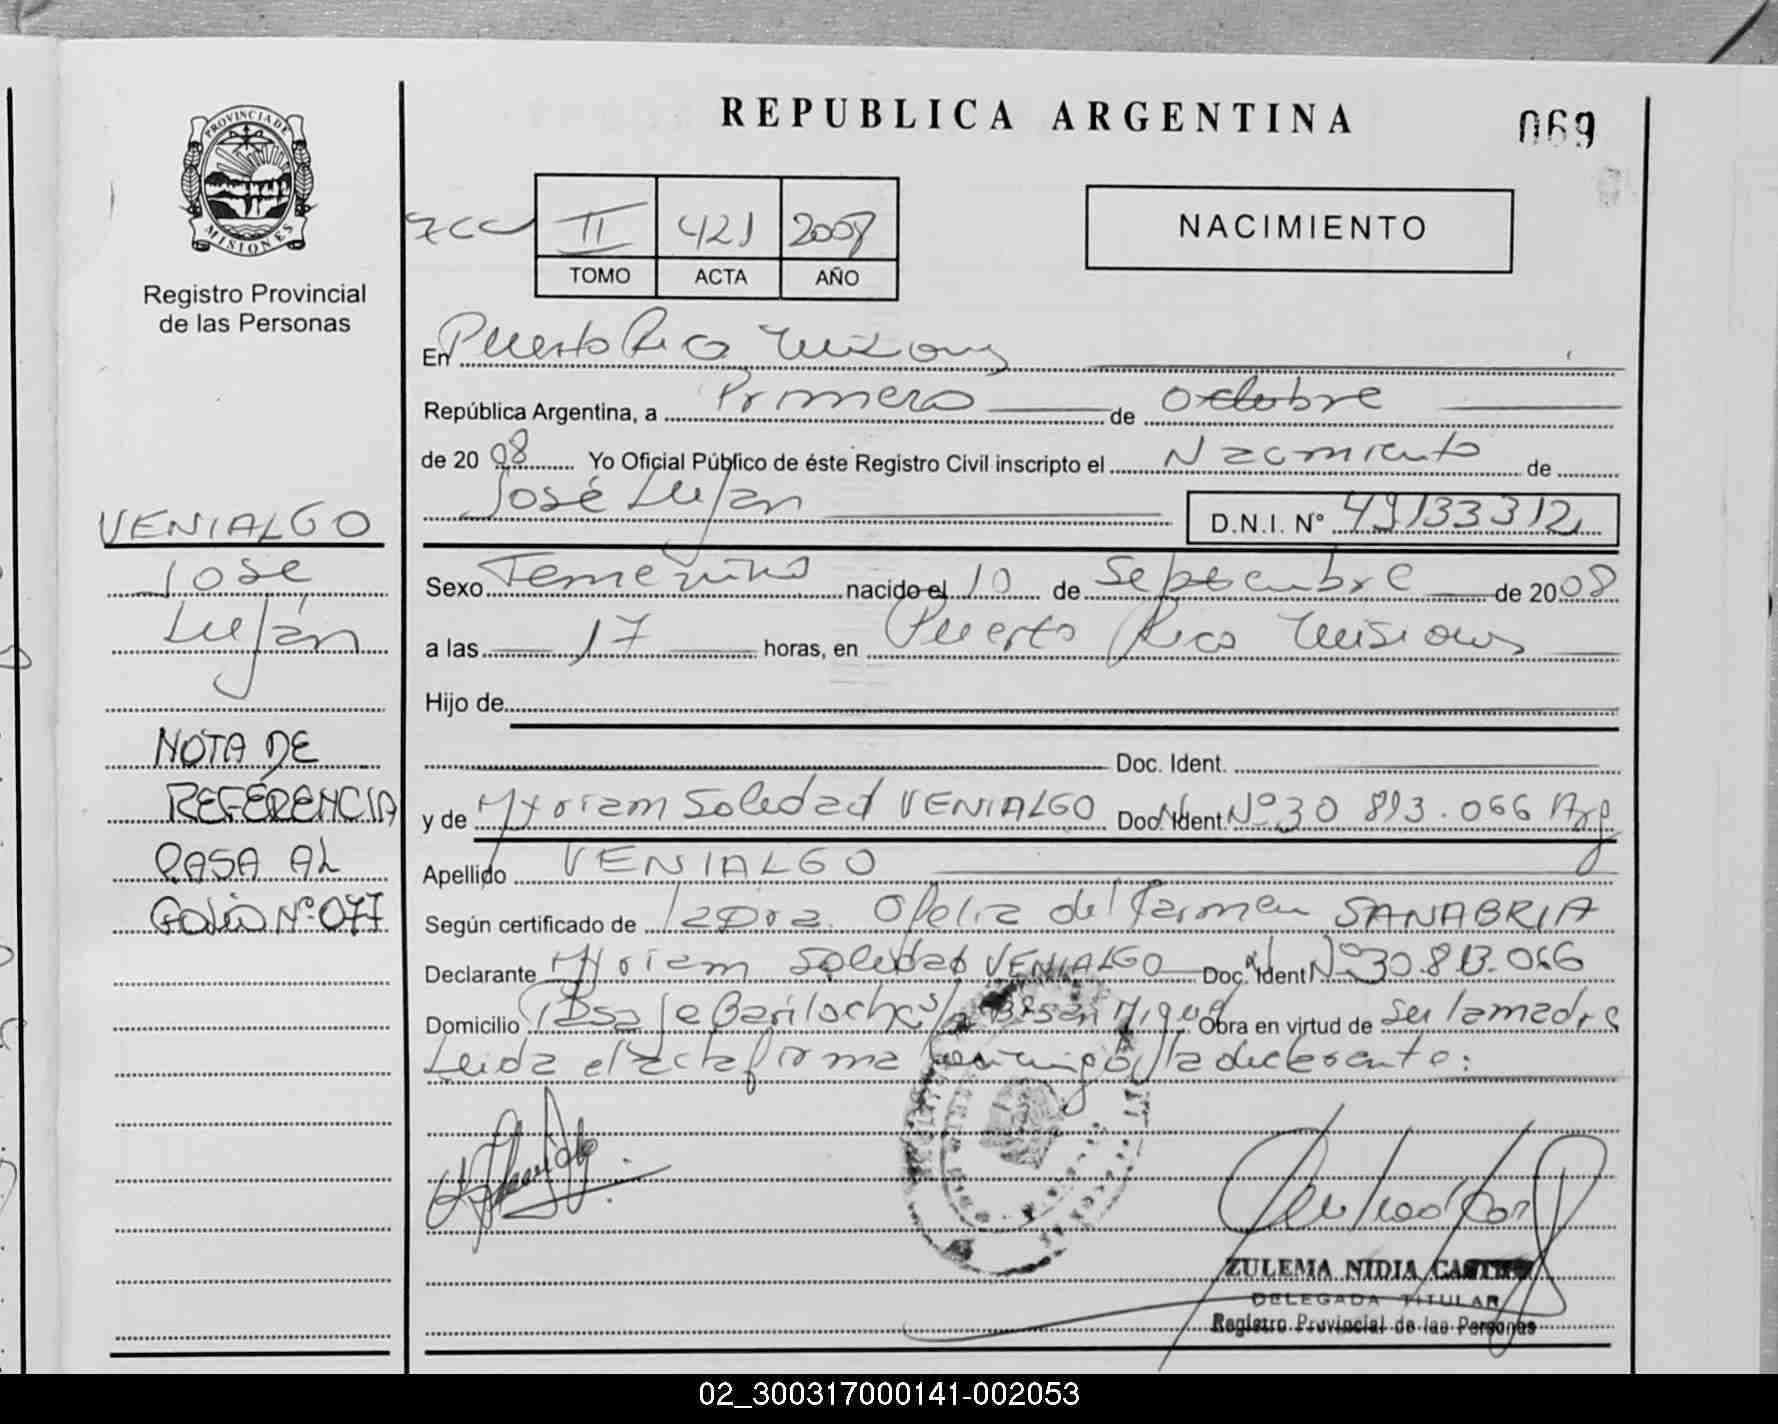 REPUBLICA ARGENTINA
069
PROVINCIA DE
MISIONES
Registro Provincial
de las Personas
II 421 2008
TOMO ACTA AÑO
NACIMIENTO
En Puerto Rico Misiones
República Argentina, a Primero de Octubre
de 2008 Yo Oficial Público de éste Registro Civil inscripto el Nacimiento de
José Luján D.N.I. Nº 49133312
Sexo Femenino nacido el 10 de Septiembre de 2008
a las 17 horas, en Puerto Rico Misiones
Hijo de
Doc. Ident.
y de Myriam Soledad VENIALGO Doc. Ident. Nº 30 813.066 Arg
Apellido VENIALGO
Según certificado de la Dra. Ofelia del Carmen SANABRIA
Declarante Myriam Soledad VENIALGO Doc. Ident Nº 30.813.066
Domicilio Pasaje Bariloche s/n Bº San Miguel Obra en virtud de ser la madre
Leida el acta firma conmigo la declarante:
VENIALGO
José
Luján
NOTA DE
REFERENCIA
PASA AL
FOLIO Nº 077
ZULEMA NIDIA
DELEGADA TITULAR
Registro Provincial de las Personas
02_300317000141-002053